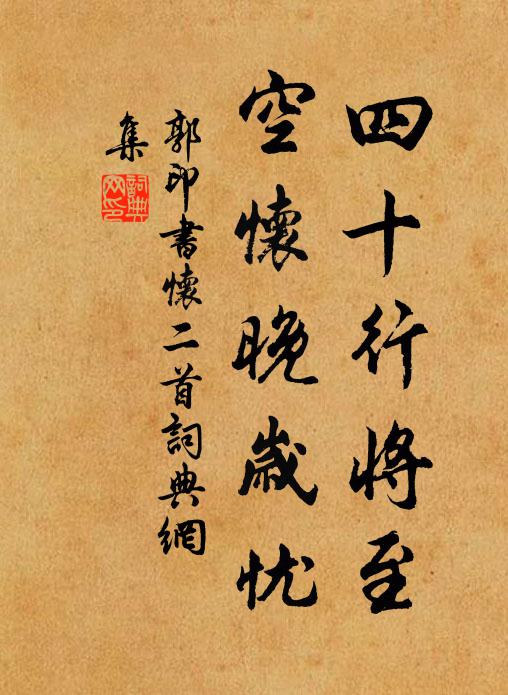 四十行将至
空懷晚歲忧
郭印書懷二首詞典網
集
詞典
网印